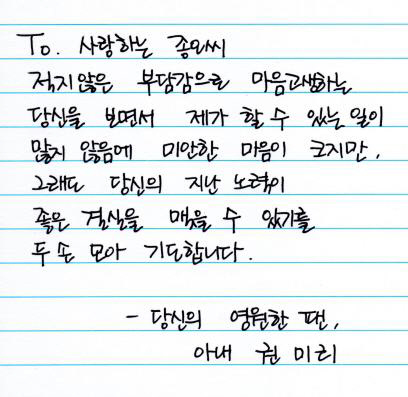 To. 사랑하는 종모씨
적지않은 부담감으로 마음고생하는
당신을 보면서 제가 할 수 있는 일이
많지 않음에 미안한 마음이 크지만,
그래도 당신의 지난 노력이
좋은 결실을 맺을 수 있기를
두 손 모아 기도합니다.
- 당신의 영원한 팬,
아내 권미리